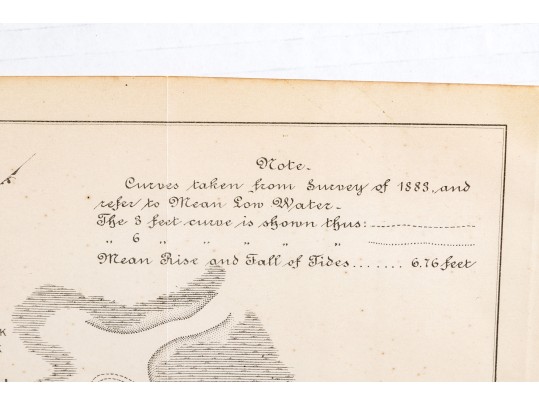 Note.
Curves taken from Survey of 1883, and
refer to Mean Low Water.
The 3 feet curve is shown thus:
„ 6 „ „ „ „ „
Mean Rise and Fall of Tides....... 6.76 feet
K